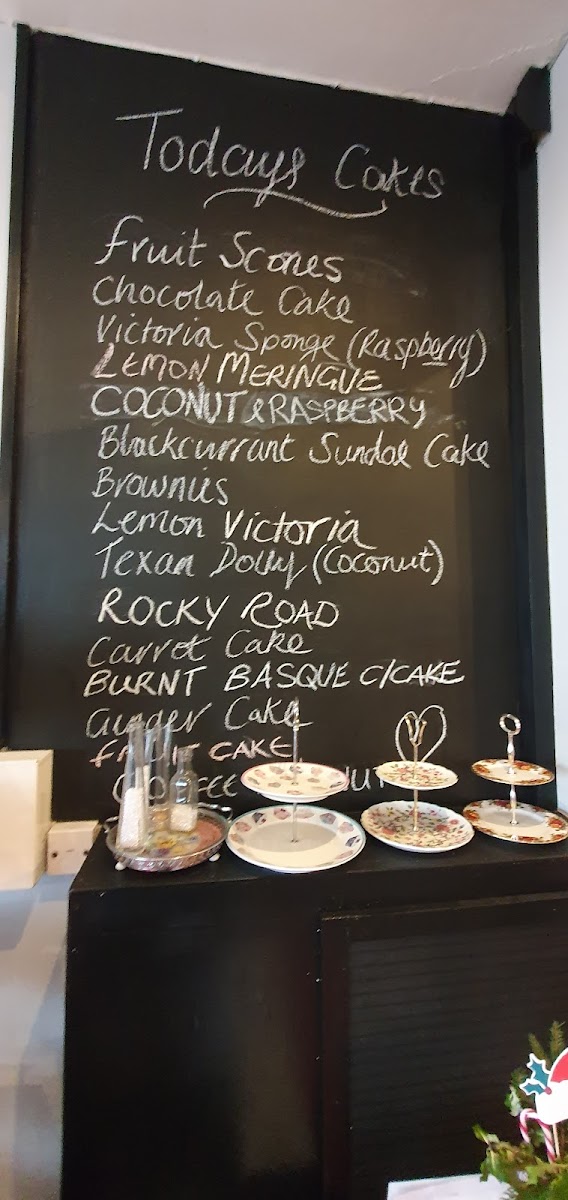 Todays Cakes
Fruit Scones
Chocolate Cake
Victoria Sponge (Raspberry)
LEMON MERINGUE
COCONUT & RASPBERRY
Blackcurrant Sundae Cake
Brownies
Lemon Victoria
Texan Dolly (Coconut)
ROCKY ROAD
Carrot Cake
BURNT BASQUE C/CAKE
Ginger Cake
FRUIT CAKE